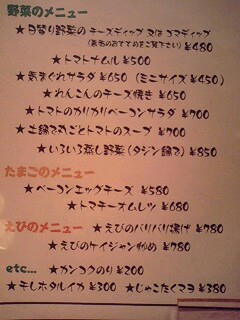 野菜のメニュー
★日替り野菜の チーズディップ 又は ゴマディップ
(表示のおすすめをご覧下さい) ¥480
★トマトナムル ¥500
★気まぐれサラダ ¥650 (ミニサイズ ¥450)
★れんこんのチーズ焼き ¥650
★トマトのカリカリベーコンサラダ ¥700
★土鍋で丸ごとトマトのスープ ¥700
★いろいろ蒸し野菜 (タジン鍋で) ¥850
たまごのメニュー
★ベーコンエッグチーズ ¥580
★トマチーオムレツ ¥680
えびのメニュー ★えびのバリバリ揚げ ¥780
★えびのケイジャン炒め ¥780
etc... ★カンコクのり ¥200
★干しホタルイカ ¥300 ★じゃこたくマヨ ¥380